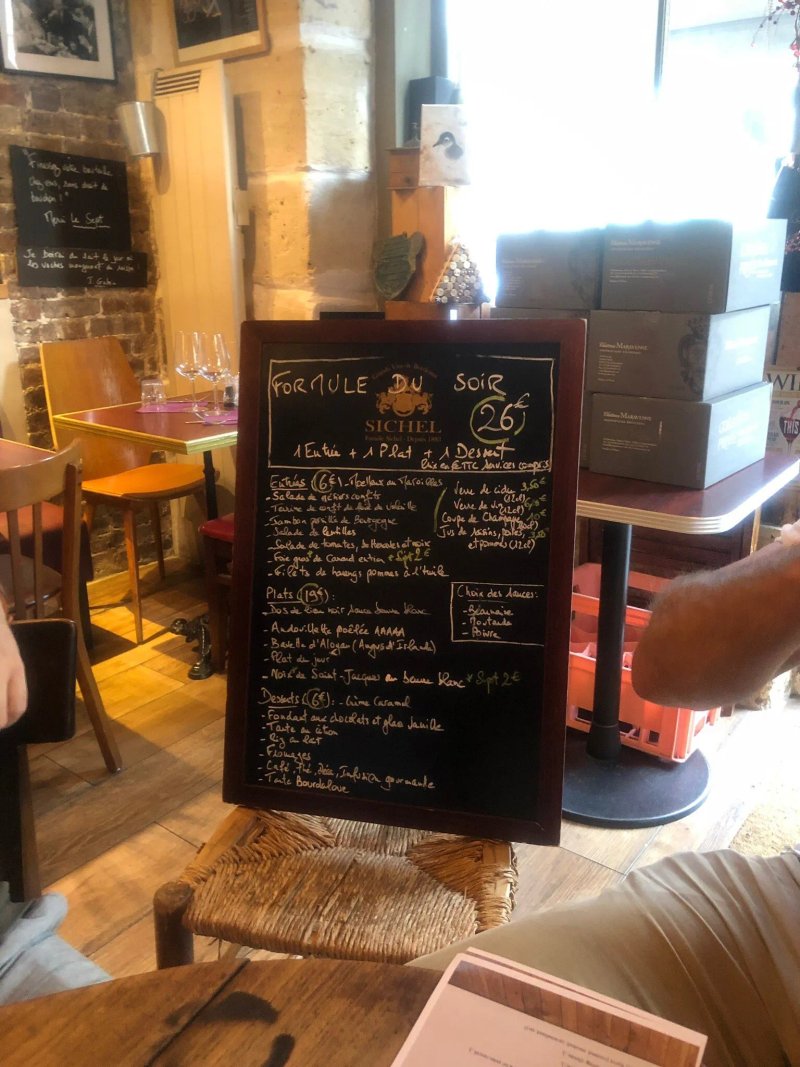 "Finissez votre bouteille
chez vous, sans droit de
bouchon!"
Merci Le Sept
Je boirai du lait le jour où
les vaches mangeront du raisin
FORMULE DU SOIR
26€
SICHEL
Famille Sichel - Depuis 1883
1 Entrée + 1 Plat + 1 Dessert
Prix en € TTC services compris
Entrées (6€): - Moelleux au Maroilles
- Salade de gésiers confits
- Terrine de
- Jambon persillé de Bourgogne
- Salade de lentilles
- Salade de tomates,
- Foie gras de Canard + Supt 2€
- Filets de harengs pommes à l'huile
Verre de cidre
(12cl)
Verre de
(12cl)
Coupe de Champagne
Jus de raisins, poires,
et pommes (12cl)
Plats (19€):
- Dos de lieu noir sauce beurre blanc
- Andouillette poêlée AAAAA
- Bavette d'Aloyau (Angus d'Irlande)
- Plat du jour
- Noix de Saint-Jacques au beurre blanc + Supt 2€
Choix des sauces:
- Béarnaise
- Moutarde
- Poivre
Desserts (6€): - Crème Caramel
- Fondant aux chocolats et glace vanille
- Tarte au citron
- Riz au lait
- Fromages
- Café, thé, déca, Infusion gourmande
- Tarte Bourdaloue
Château MARAVENNE
Château MARAVENNE
Château MARAVENNE
WI
THIS